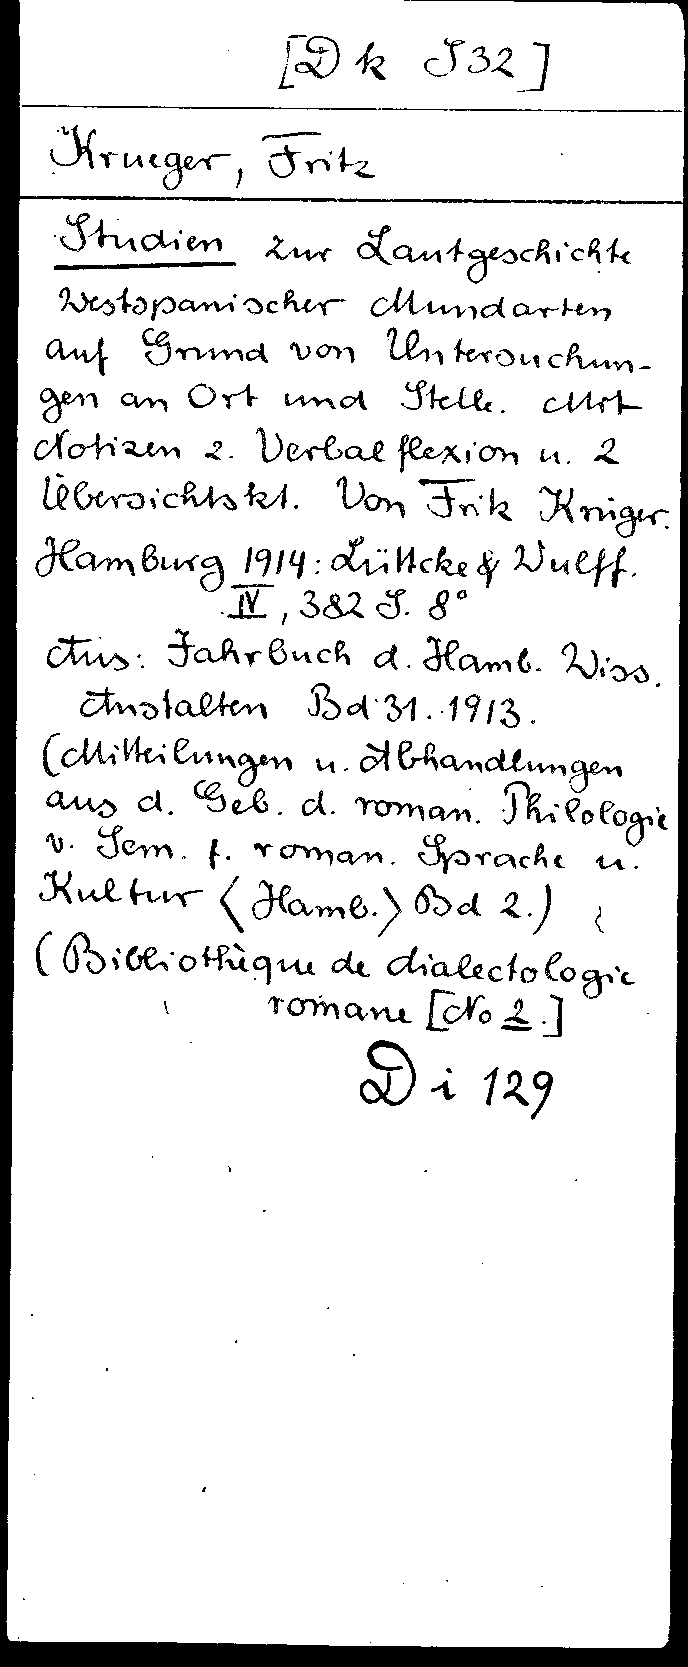 [Dk S32]
Krueger, Fritz
Studien zur Lautgeschichte
westspanischer Mundarten
auf Grund von Untersuchun-
gen an Ort und Stelle. Mit
Notizen z. Verbalflexion u. 2
Übersichtskt. Von Fritz Krüger.
Hamburg 1914: Lüttcke & Wulff.
IV, 382 S. 8°
Aus: Jahrbuch d. Hamb. Wiss.
Anstalten Bd 31. 1913.
(Mitteilungen u. Abhandlungen
aus d. Geb. d. roman. Philologie
v. Sem. f. roman. Sprache u.
Kultur <Hamb.> Bd 2.)
(Bibliothèque de dialectologie
romane [No 2.]
Di 129